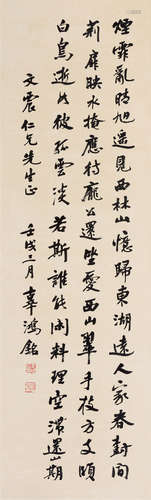 煙霏亂晴旭遥見西林山憶歸東湖遠人家春間
荊扉映水掩應待龐公還坐愛西山翠手板方支頤
白鳥逝如彼孤雲淡若斯誰能閑料理空滯還山期
文震仁兄先生正
壬戌三月辜鴻銘